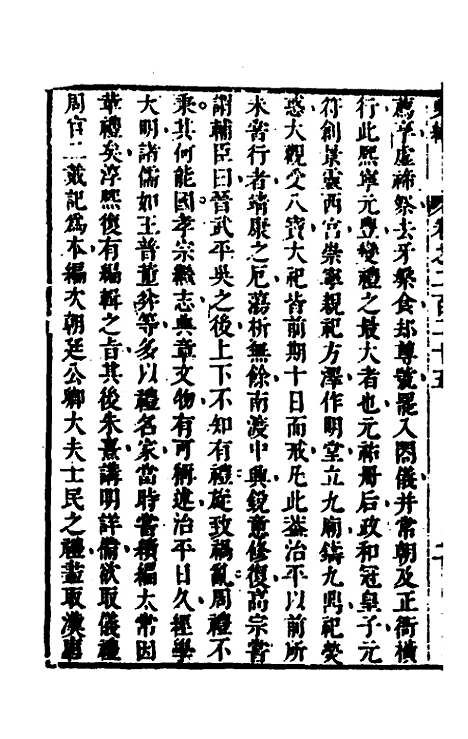 卷之二百二十五
薦享虛禘祭去牙槃食却尊號罷入閤儀并常朝及正衙橫
行此熙寧元豐變禮之最大者也元祐冊后政和冠皇子元
符創景靈西宮崇寧親祀方澤作明堂立九廟鑄九鼎祀熒
惑大觀受八寶大祀皆前期十日而戒凡此蓋治平以前所
未嘗行者靖康之厄蕩析無餘南渡中興銳意修復高宗嘗
謂輔臣曰晉武平吳之後上下不知有禮旋致禍亂周禮不
秉其何能國孝宗繼志典章文物有可稱述治平日久經學
大明諸儒如王普董弅等多以禮名家當時嘗續編太常因
革禮矣淳熙復有編輯之旨其後朱熹講明詳備欲取儀禮
周官二戴記爲本編次朝廷公卿大夫士民之禮盡取漢